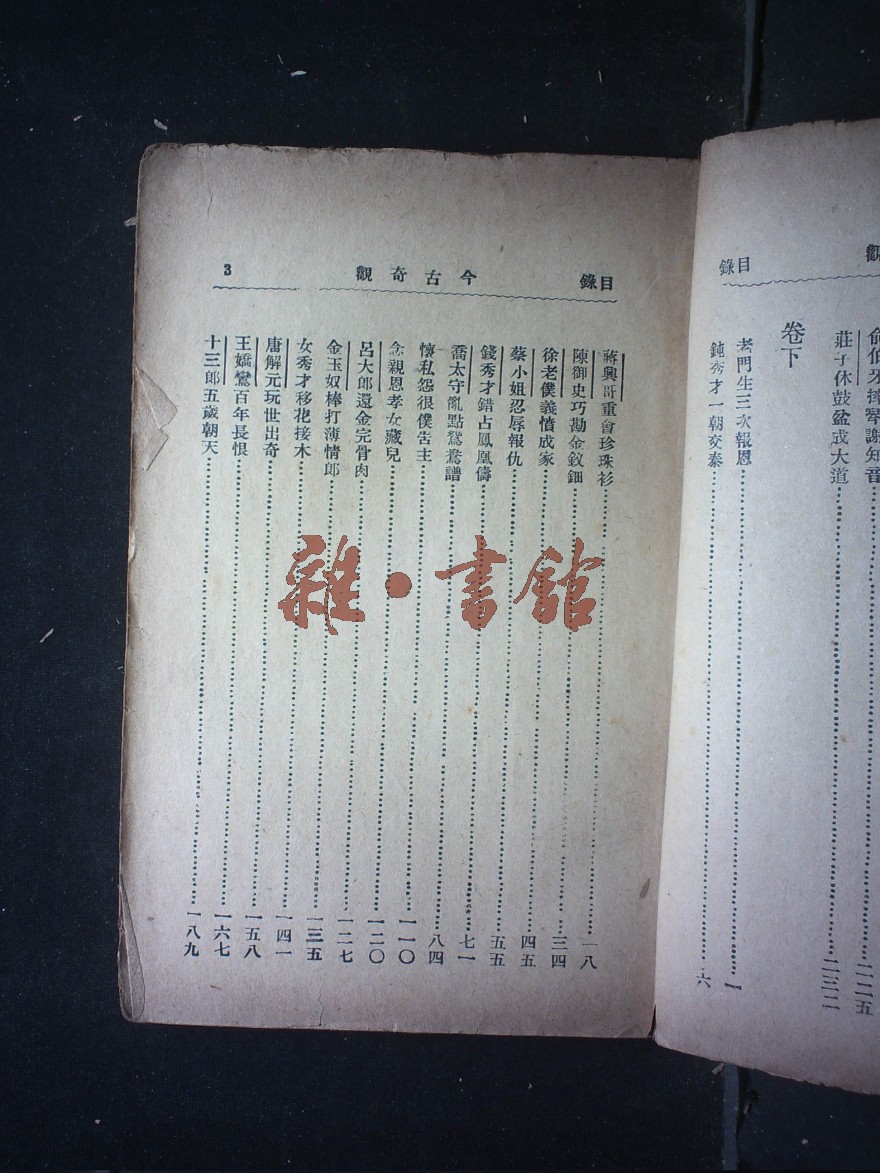 觀
目錄
俞伯牙摔琴謝知音……二二五
莊子休鼓盆成大道……二三二
卷下
老門生三次報恩……一
鈍秀才一朝交泰……六
目錄
今古奇觀
3
蔣興哥重會珍珠衫……一八
陳御史巧勘金釵鈿……三四
徐老僕義憤成家……四五
蔡小姐忍辱報仇……五五
錢秀才錯占鳳凰儔……七一
喬太守亂點鴛鴦譜……八四
懷私怨很僕告主……一一〇
念親恩孝女藏兒……一二〇
呂大郎還金完骨肉……一二七
金玉奴棒打薄情郎……一三五
女秀才移花接木……一四一
唐解元玩世出奇……一五八
王嬌鸞百年長恨……一六七
十三郎五歲朝天……一八九
雜·書館